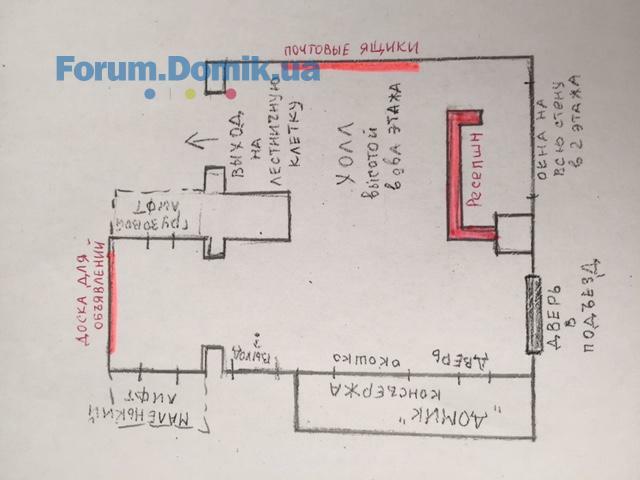 ПОЧТОВЫЕ ЯЩИКИ
Forum.Domik.ua
ВЫХОД
НА
ЛЕСТНИЧНУЮ
КЛЕТКУ
ХОЛЛ
высотой
в два этажа
Ресепшн
ОКНА НА
ВСЮ СТЕНУ
в 2 ЭТАЖА
ГРУЗОВОЙ
ЛИФТ
ДОСКА ДЛЯ
ОБЪЯВЛЕНИЙ
ДВЕРЬ
В
ПОДЪЕЗД
ВЫХОД
ОКОШКО
ДВЕРЬ
"ДОМИК"
КОНСЬЕРЖА
МАЛЕНЬКИЙ
ЛИФТ